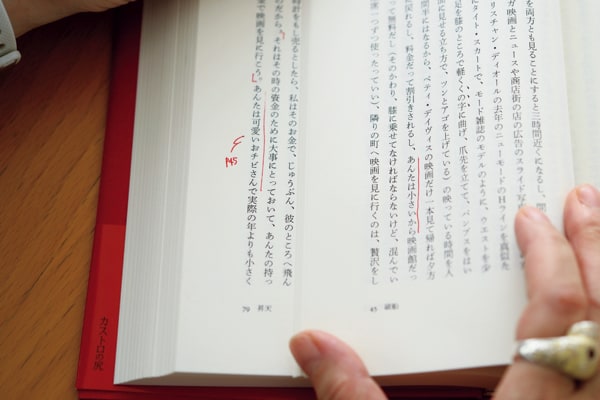 を両方とも見ることにすると三時間近くになるし、間
ガ映画とニュースや商店街の店の広告のスライド写
リスチャン・ディオールの去年のニューモードのHラインを真似た
にタイト・スカートで、モード雑誌のモデルのように、ウエストを少
足を膝のところで軽くくの字に曲げ、爪先を立てて、パンプスをはい
に見せる立ち方で、ツンとアゴを上げている)の映っている時間を人
間半にはなるから、ベティ・デイヴィスの映画だけ一本見て帰れば夕方
に戻れるし、料金だって割引きされるし、あんたは小さいから映画館だっ
って無料だし(そのかわり、膝に乗せてなければならないけど、混んでい
席一つずつ使ったっていい)、隣りの町へ映画を見に行くのは、贅沢をし
45
時計をもし売るとしたら、私はそのお金で、じゅうぶん、彼のところへ飛ん
のだから、それはその時の資金のために大事にとっておいて、あんたの持っ
金で映画を見に行こう。あんたは可愛いおチビさんで実際の年よりも小さく
P45
79 昇天
カストロの尻